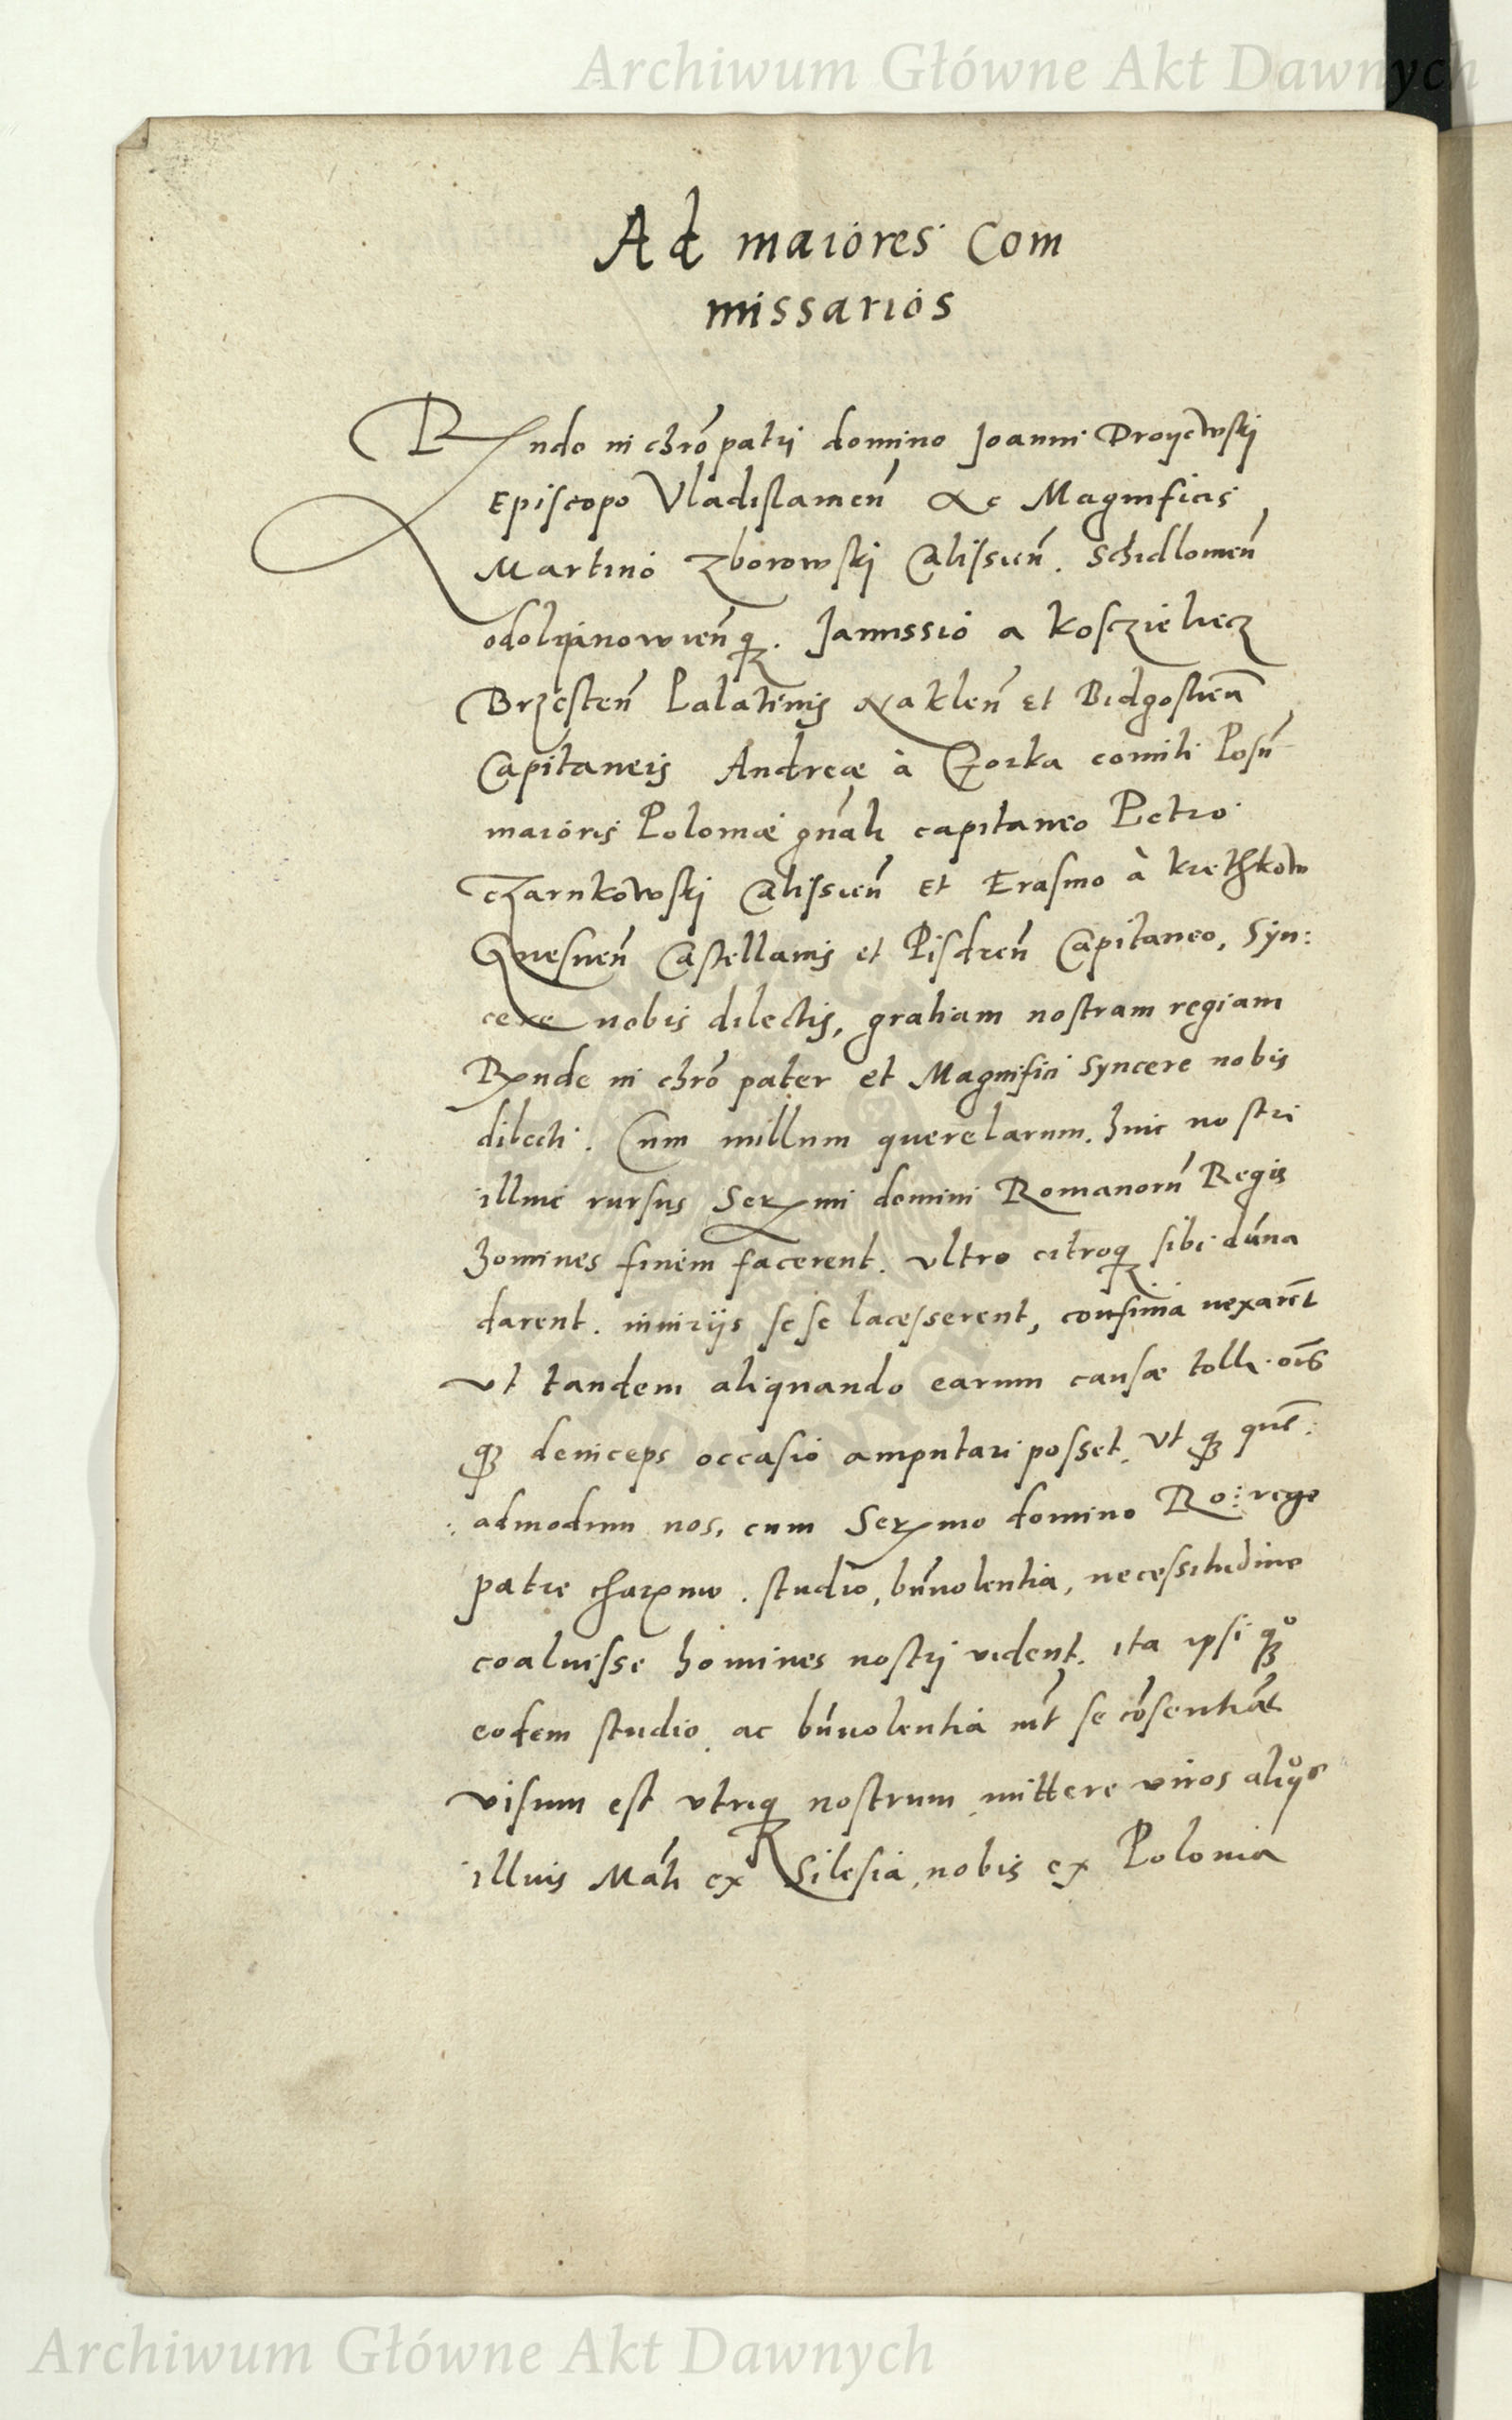 Archiwum Główne Akt Dawnych
Ad maiores Com
missarios
Rndo in chrō patri domino Joanni Droyewski
Episcopo Vladislauien̄ &c Magnificis
Martino Zborowski Calissien̄. Schidlouien̄
odolyanowien̄q. Janussio a Kosczieliecz
Brzesten̄ Palatinis Naklen̄ et Bidgostien̄
Capitaneis Andreæ à Gorka comiti Posn̄
maioris Poloniæ gn̄ali capitaneo Petro
Czarnkowski Calissien̄ et Erasmo à Krethkow
Gnesnen̄ Castellanis et Pisdren̄ Capitaneo, Syn:
cere nobis dilectis, gratiam nostram regiam
Rnde in chrō pater et Magnifici syncere nobis
dilecti. Cum nullum querelarum. hinc nostri
illinc rursus Sermi domini Romanorū Regis
homines finem facerent. ultro citroq sibi dāna
darent. iniurijs sese lacesserent, confinia uexarēt
Vt tandem aliquando earum causæ tolli. oīs
q deinceps occasio amputari posset. Vt q quē:
admodum nos, cum Sermo domino Ro: rege
patre charmo. studio, bn̄uolentia, necessitudine
coaluisse homines nostri uident. ita ipsi qo
eodem studio ac bn̄uolentia int̄ se cōsentiāt
visum est utriq nostrum mittere uiros aliqs
illius Māti ex Silesia, nobis ex Polonia
Archiwum Główne Akt Dawnych